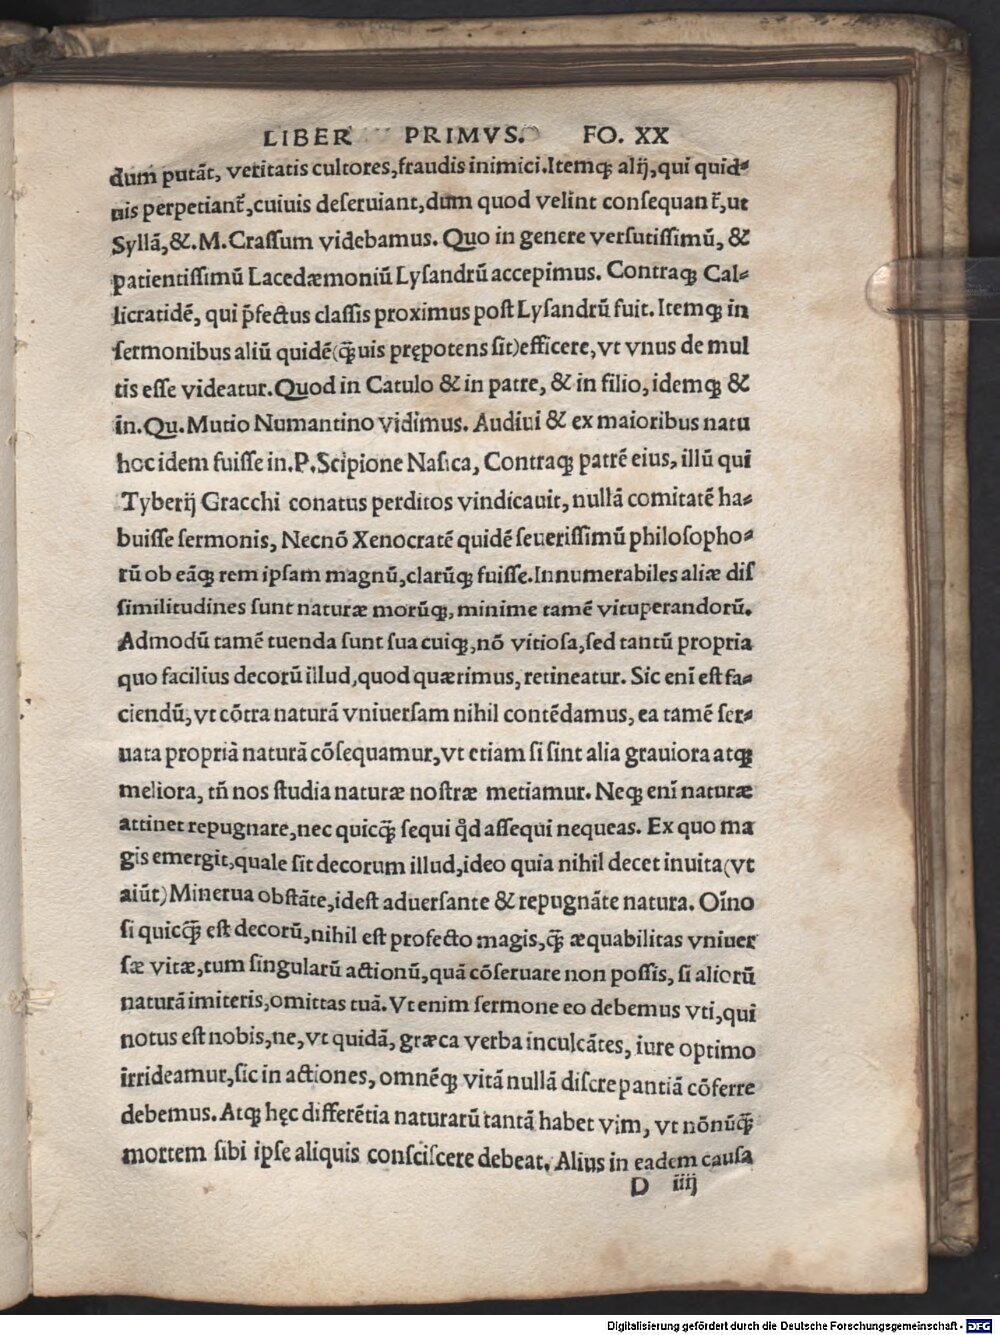 LIBER PRIMVS. FO. XX
dum putāt, veritatis cultores, fraudis inimici. Itemq; alij, qui quid-
uis perpetiantr̄, cuiuis deseruiant, dum quod velint consequantr̄, ut
Syllā, &. M. Crassum videbamus. Quo in genere versutissimū, &
patientissimū Lacedæmoniū Lysandrū accepimus. Contraq; Cal-
licratidē, qui p̄fectus classis proximus post Lysandrū fuit. Itemq; in
sermonibus aliū quidē (q̄uis prępotens sit) efficere, vt vnus de mul
tis esse videatur. Quod in Catulo & in patre, & in filio, idemq; &
in. Qu. Mutio Numantino vidimus. Audiui & ex maioribus natu
hoc idem fuisse in. P. Scipione Nasica, Contraq; patrē eius, illū qui
Tyberij Gracchi conatus perditos vindicauit, nullā comitatē ha-
buisse sermonis, Necnō Xenocratē quidē seuerissimū philosopho-
rū ob eāq; rem ipsam magnū, clarūq; fuisse. Innumerabiles aliæ dis
similitudines sunt naturæ morūq;, minime tamē vituperandorū.
Admodū tamē tuenda sunt sua cuiq;, nō vitiosa, sed tantū propria
quo facilius decorū illud, quod quærimus, retineatur. Sic enī est fa-
ciendū, vt cōtra naturā vniuersam nihil contēdamus, ea tamē ser-
uata propriā naturā cōsequamur, vt etiam si sint alia grauiora atq;
meliora, tn̄ nos studia naturæ nostræ metiamur. Neq; enī naturæ
attinet repugnare, nec quicq̄ sequi qd̄ assequi nequeas. Ex quo ma
gis emergit, quale sit decorum illud, ideo quia nihil decet inuita (vt
aiūt) Minerua obstāte, idest aduersante & repugnāte natura. Oīno
si quicq̄ est decorū, nihil est profecto magis, q̄ æquabilitas vniuer
sæ vitæ, tum singularū actionū, quā cōseruare non possis, si aliorū
naturā imiteris, omittas tuā. Vt enim sermone eo debemus vti, qui
notus est nobis, ne, vt quidā, græca verba inculcātes, iure optimo
irrideamur, sic in actiones, omnēq; vitā nullā discrepantiā cōferre
debemus. Atq; hęc differētia naturarū tantā habet vim, vt nōnūq̄
mortem sibi ipse aliquis consciscere debeat. Alius in eadem causa
D iiij
Digitalisierung gefördert durch die Deutsche Forschungsgemeinschaft - DFG